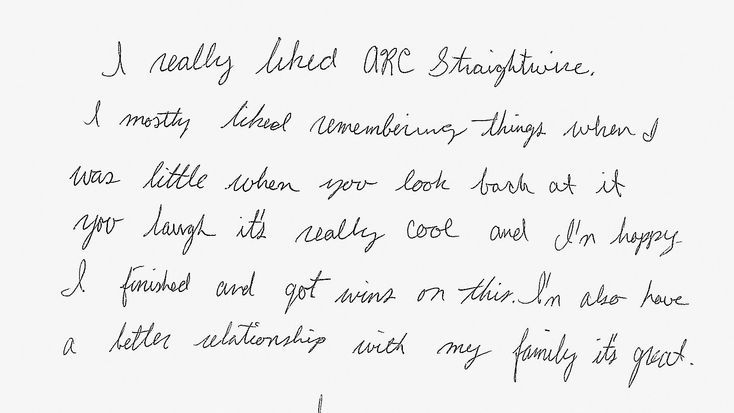 I really liked ARC Straightwire.
I mostly liked remembering things when I
was little when you look back at it
you laugh it's really cool and I'm happy
I finished and got wins on this. I'm also have
a better relationship with my family it's great.